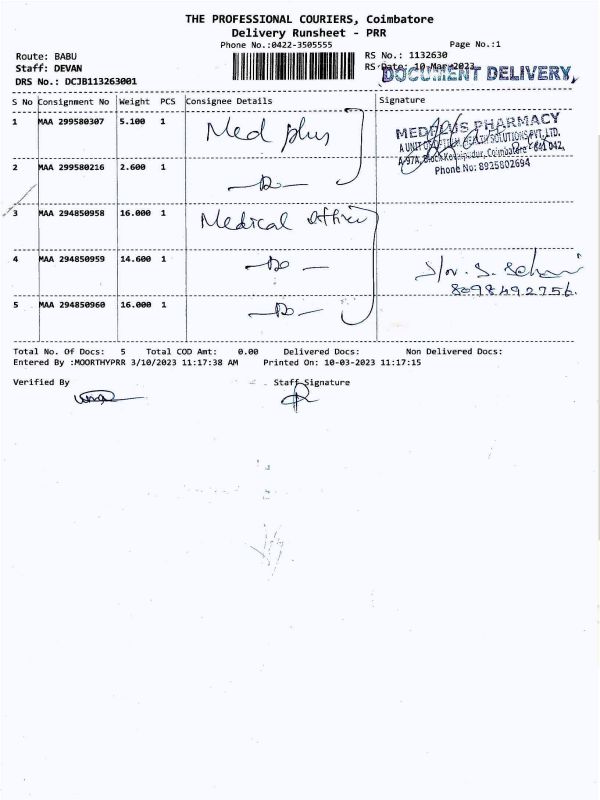 THE PROFESSIONAL COURIERS, Coimbatore
Delivery Runsheet - PRR
Phone No.:0422-3505555 Page No.:1
Route: BABU RS No.: 1132630
Staff: DEVAN RS Date: 10-Mar-2023
DOCUMENT DELIVERY,
DRS No.: DCJB113263001
S No Consignment No Weight PCS Consignee Details Signature
1 MAA 299580307 5.100 1 Med plus
MEDPLUS PHARMACY
A UNIT OF HEALTH SOLUTIONS PVT. LTD.
A-97A, Block Coimbatore - 641 042,
Phone No: 8925802694
2 MAA 299580216 2.600 1 -Do-
3 MAA 294850958 16.000 1 Medical
4 MAA 294850959 14.600 1 -Do-
8098492756.
5 MAA 294850960 16.000 1 -Do-
Total No. Of Docs: 5 Total COD Amt: 0.00 Delivered Docs: Non Delivered Docs:
Entered By :MOORTHYPRR 3/10/2023 11:17:38 AM Printed On: 10-03-2023 11:17:15
Verified By Staff Signature